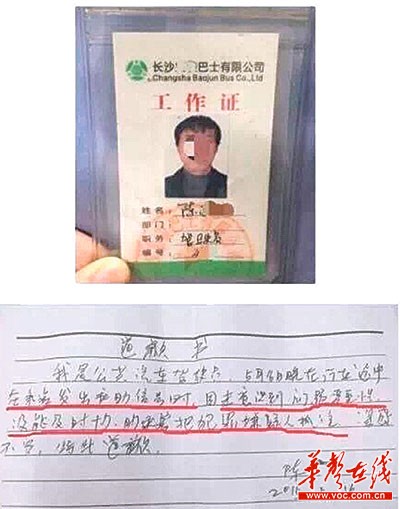 长沙 巴士有限公司
Changsha Baojun Bus Co.,Ltd
工作证
姓名： 陈
部门：
职务：
编号：
道歉书
我是公共汽车驾驶员，5月6日晚在行车途中
在乘客发出求助信号时，因未意识到问题严重性
没能及时协助乘客把犯罪嫌疑人抓住，
特此道歉。
陈
华声在线
www.voc.com.cn